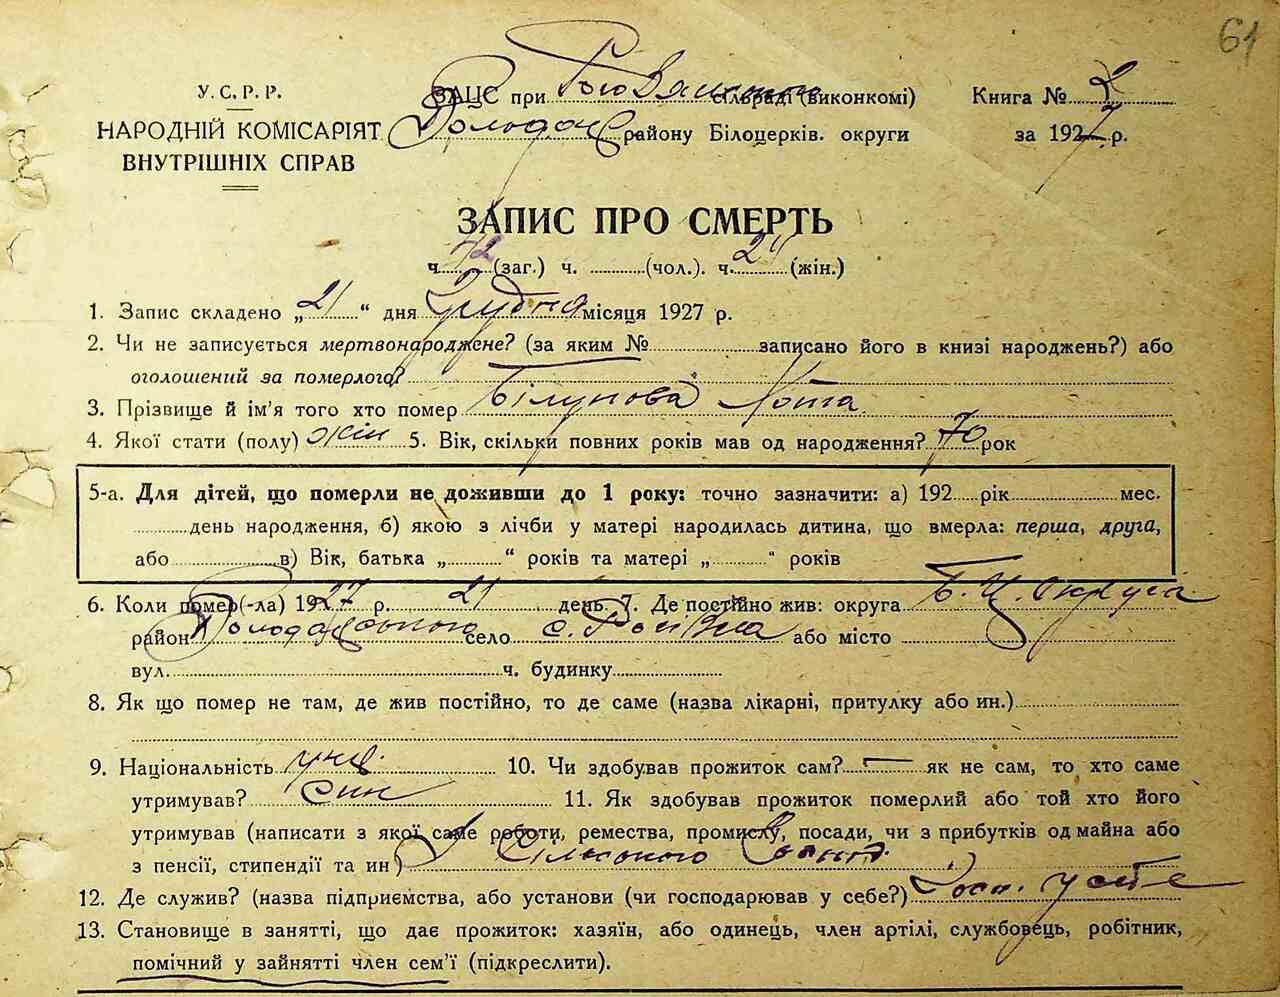 61
У.С.Р.Р. ЗАЦС при сільраді (виконкомі) Книга № 2
НАРОДНІЙ КОМІСАРІЯТ Володар району Білоцерків. округи за 1927 р.
ВНУТРІШНІХ СПРАВ
ЗАПИС ПРО СМЕРТЬ
ч. 42 (заг.) ч. (чол.). ч. 24 (жін.)
1. Запис складено „21“ дня Грудня місяця 1927 р.
2. Чи не записується мертвонароджене? (за яким № записано його в книзі народжень?) або
оголошений за померлого?
3. Прізвище й ім'я того хто помер
4. Якої стати (полу) жін 5. Вік, скільки повних років мав од народження? 70 рок
5-а. Для дітей, що померли не доживши до 1 року: точно зазначити: а) 192 рік мес.
день народження, б) якою з лічби у матері народилась дитина, що вмерла: перша, друга,
або в) Вік, батька „ “ років та матері „ “ років
6. Коли помер(-ла) 1927 р. 21 день 7. Де постійно жив: округа Б.Ц. округа
район Володарського село с. або місто
вул. ч. будинку
8. Як що помер не там, де жив постійно, то де саме (назва лікарні, притулку або ин.)
9. Національність укр. 10. Чи здобував прожиток сам? — як не сам, то хто саме
утримував? син 11. Як здобував прожиток померлий або той хто його
утримував (написати з якої саме роботи, ремества, промислу, посади, чи з прибутків од майна або
з пенсії, стипендії та ин) З сільського
12. Де служив? (назва підприємства, або установи (чи господарював у себе?) Госп. у себе
13. Становище в занятті, що дає прожиток: хазяїн, або одинець, член артілі, службовець, робітник,
помічний у зайнятті член сем'ї (підкреслити).